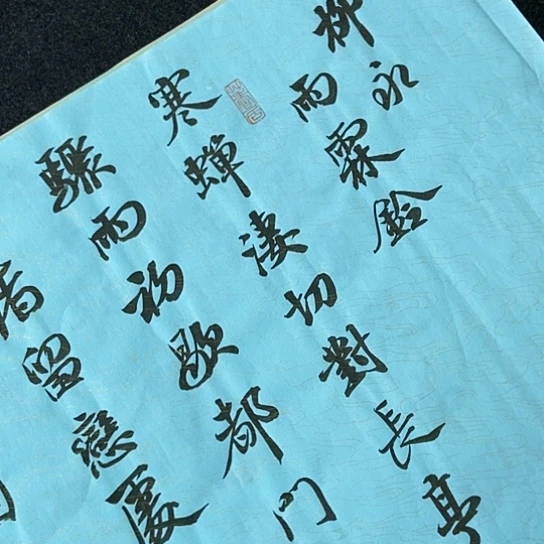 柳永
雨霖鈴
寒蟬淒切對長亭
驟雨初歇都門
留戀處